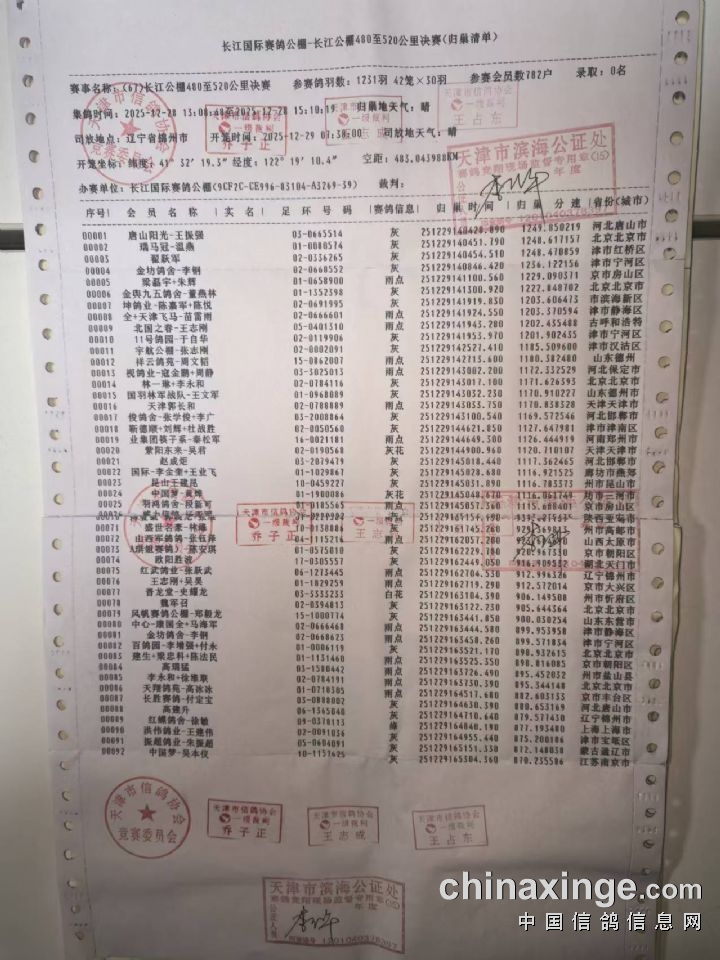 长江国际赛鸽公棚-长江公棚480至520公里决赛(归巢清单)
赛事名称:(67)长江公棚480至520公里决赛 参赛鸽羽数:1231羽 42笼×30羽 参赛会员数782户 录取:0名
集鸽时间:2025-12-28 13:00:40至2025-12-28 15:10:19 归巢地天气:晴
司放地点:辽宁省锦州市 开笼时间:2025-12-29 07:38:00 司放地天气:晴
开笼坐标:纬度:41° 32' 19.3" 经度:122° 19' 10.4" 空距:483.043988KM
办赛单位:长江国际赛鸽公棚(9CF2C-CE996-03104-A3269-39) 裁判:
序号 会员名称 实名 足环号码 赛鸽信息 归巢时间 归巢分速 省份(城市)
00001 唐山阳光-王振强 03-0665514 灰 251229140428.090 1249.850219 河北唐山市
00002 瑞马冠-温燕 01-0080574 灰 251229140451.790 1248.617157 北京北京市
00003 翟跃军 02-0336265 灰 251229140454.510 1248.470859 津市红桥区
00004 金坊鸽舍-李钢 02-0660552 灰 251229140846.420 1236.122156 津市宁河区
00005 梁磊宇+朱辉 01-0658900 雨点 251229141100.560 1229.090371 京市房山区
00006 金舆九五鸽舍-董燕林 01-1352398 灰 251229141300.920 1222.848702 北京北京市
00007 坤鸽业-陈嘉军+陈悦 02-0691995 灰 251229141919.830 1203.606473 市滨海新区
00008 全+天津飞马-苗雷雨 02-0666601 雨点 251229141924.550 1203.370594 津市静海区
00009 北国之春-王志刚 05-0401310 雨点 251229141943.280 1202.435488 古呼和浩特
00010 11号鸽园-于自华 02-0119906 灰 251229141953.970 1201.902435 津市宁河区
00011 宇航公棚-张志刚 02-0002091 灰 251229142527.410 1185.509600 津市汉沽区
00012 祥云鸽苑-周文韬 15-0862007 雨点 251229142713.600 1180.382480 山东德州
00013 视鸽业-寇金鹏+周静 03-3025013 雨点 251229143002.200 1172.332529 河北保定市
00014 林一琳+李永和 02-0784116 灰 251229143017.100 1171.626393 北京北京市
00015 国羽林军战队-王文军 01-0968089 灰 251229143032.230 1170.910227 山东德州市
00016 天津郭长和 02-0788889 雨点 251229143033.750 1170.838328 天津天津市
00017 俊鸽舍-张学俊+李广 03-2008864 灰 251229143100.540 1169.572546 河北邯郸市
00018 靳德顺+刘辉+杜战胜 02-0050560 灰 251229144621.850 1127.647981 津市津南区
00019 业集团筷子系-秦松军 16-0021181 雨点 251229144649.300 1126.444919 河南郑州市
00020 紫阳东来-吴君 02-0190568 灰花 251229144900.960 1120.710107 天津天津市
00021 赵成炬 03-2079479 灰 251229145018.440 1117.362465 河北邯郸市
00022 国际-李金奎+王业飞 01-1029867 灰 251229145028.680 1116.921525 廊坊市燕郊
00023 昆山王建昆 10-0459227 灰 251229145031.890 1116.783373 州市昆山市
00024 中国梦-黄烨 01-1900086 灰花 251229145048.670 1116.061749 坊市三河市
00025 羽鸿鸽舍-段新可 灰 1115.608401 京市房山区
00071 盛世名豪-林雄 灰 州市高邮市
00072 山西军鸽鸽-张钰萍 雨点 山西太原市
00073 陈安琪 01-0575010 灰 京市朝阳区
00074 欧阳胜波 17-0305557 灰 251229162449.050 916.909582 湖北天门市
00075 红武鸽业-张跃武 06-1273445 雨点 251229162704.530 912.996326 辽宁锦州市
00076 王志刚-吴昊 01-1829259 雨点 251229162719.290 912.572014 京市大兴区
00077 晋龙堂-史耀龙 03-3333233 白花 251229163104.390 906.149508 州市忻府区
00078 魏军召 02-0394813 灰 251229163122.230 905.644364 北京北京市
00079 风帆赛鸽公棚-郑毅龙 15-1000774 灰 251229163441.850 900.030254 山东东营市
00080 中心-康国全+马海军 02-0666468 雨点 251229163444.580 899.953958 津市静海区
00081 金坊鸽舍-李钢 02-0668623 雨点 251229163458.260 899.571854 津市宁河区
00082 百鸽园-李增强+付永 01-0086119 灰 251229163521.170 898.932615 北京北京市
00083 建生+梁忠科+陈法民 01-1131460 雨点 251229163525.350 898.816085 京市朝阳区
00084 高瑞猛 03-1580442 雨点 251229163726.650 895.452032 州市盐山县
00085 李永和+徐维联 02-0784191 灰 251229163730.390 895.344148 北京北京市
00086 天翔鸽苑-高冰冰 01-0718305 雨点 251229164517.580 882.603133 京市丰台区
00087 长胜赛鸽-付定宝 03-0888002 灰 251229164630.390 880.653169 河北唐山市
00088 高建升 06-1345040 灰 251229164710.640 879.577430 辽宁锦州市
00089 红蝶鸽舍-徐敏 09-0378113 绛 251229164840.180 877.193480 上海上海市
00090 洪伟鸽业-王建伟 02-0091036 灰 251229164955.440 875.200186 津市宝坻区
00091 振超鸽业-朱振超 05-0604091 灰 251229165151.330 872.148038 蒙古盟辽市
00092 中国梦-吴本仪 10-1151625 灰 251229165304.360 870.235586 江苏南京市
天津市信鸽协会
竞赛委员会
天津市信鸽协会
一级裁判
乔子正
天津市信鸽协会
一级裁判
王志成
天津市信鸽协会
一级裁判
王占东
天津市滨海公证处
赛鸽竞翔现场监督专用章(15)
年度
chinaxinge.com
中国信鸽信息网